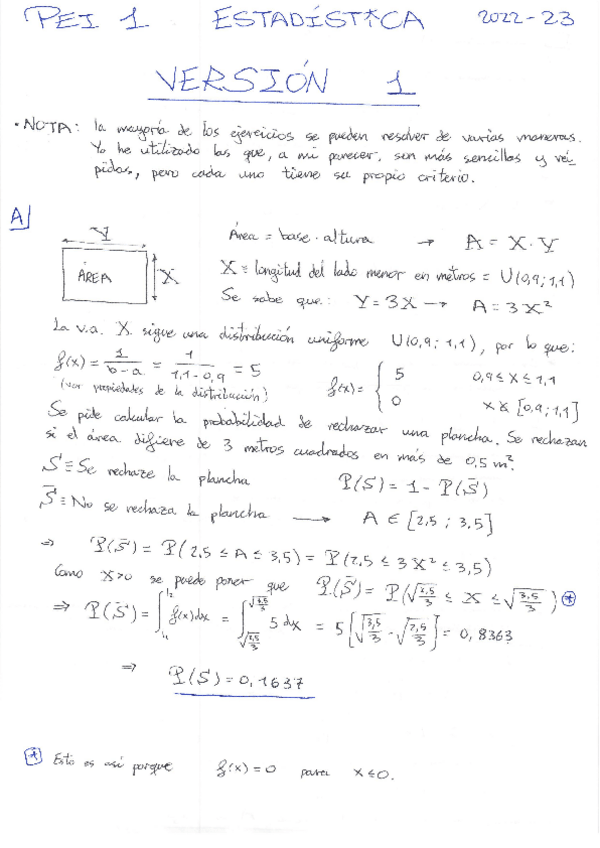 PEI 1 ESTADÍSTICA 2022-23
VERSIÓN 1
• NOTA: la mayoría de los ejercicios se pueden resolver de varias maneras.
Yo he utilizado las que, a mi parecer, son más sencillas y rá-
pidas, pero cada uno tiene su propio criterio.
A)
Y
ÁREA
X
Área = base · altura → A = X · Y
X ≡ longitud del lado menor en metros = U(0,9; 1,1)
Se sabe que: Y = 3X → A = 3X²
La v.a. X sigue una distribución uniforme U(0,9; 1,1), por lo que:
f(x) = 1/(b-a) = 1/(1,1-0,9) = 5
(ver propiedades de la distribución)
f(x) = { 5 0,9 ≤ x ≤ 1,1
0 x ∉ [0,9; 1,1]
Se pide calcular la probabilidad de rechazar una plancha. Se rechazan
si el área difiere de 3 metros cuadrados en más de 0,5 m².
S ≡ Se rechaze la plancha P(S) = 1 - P(S̄)
S̄ ≡ No se rechaza la plancha → A ∈ [2,5 ; 3,5]
⇒ P(S̄) = P(2,5 ≤ A ≤ 3,5) = P(2,5 ≤ 3X² ≤ 3,5)
Como x>0 se puede poner que P(S̄) = P(√(2,5/3) ≤ X ≤ √(3,5/3)) *
⇒ P(S̄) = ∫_{l₁}^{l₂} f(x)dx = ∫_{√(2,5/3)}^{√(3,5/3)} 5 dx = 5[√(3,5/3) - √(2,5/3)] = 0,8363
⇒ P(S) = 0,1637
* Esto es así porque f(x) = 0 para x ≤ 0.